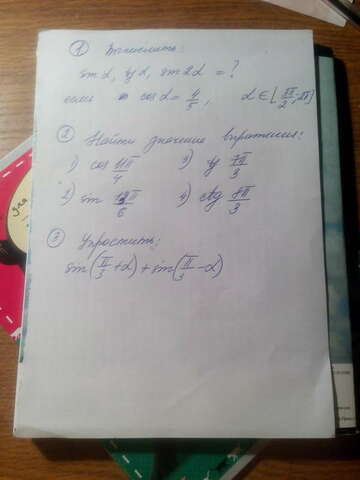 ① Вычислить:
sin α, tg α, sin 2α = ?
если cos α = 4/5, α ∈ [3π/2; 2π]
② Найти значение выражения:
1) cos 11π/4 3) tg 7π/3
2) sin 13π/6 4) ctg 8π/3
③ Упростить:
sin(π/3 + α) + sin(π/3 − α)